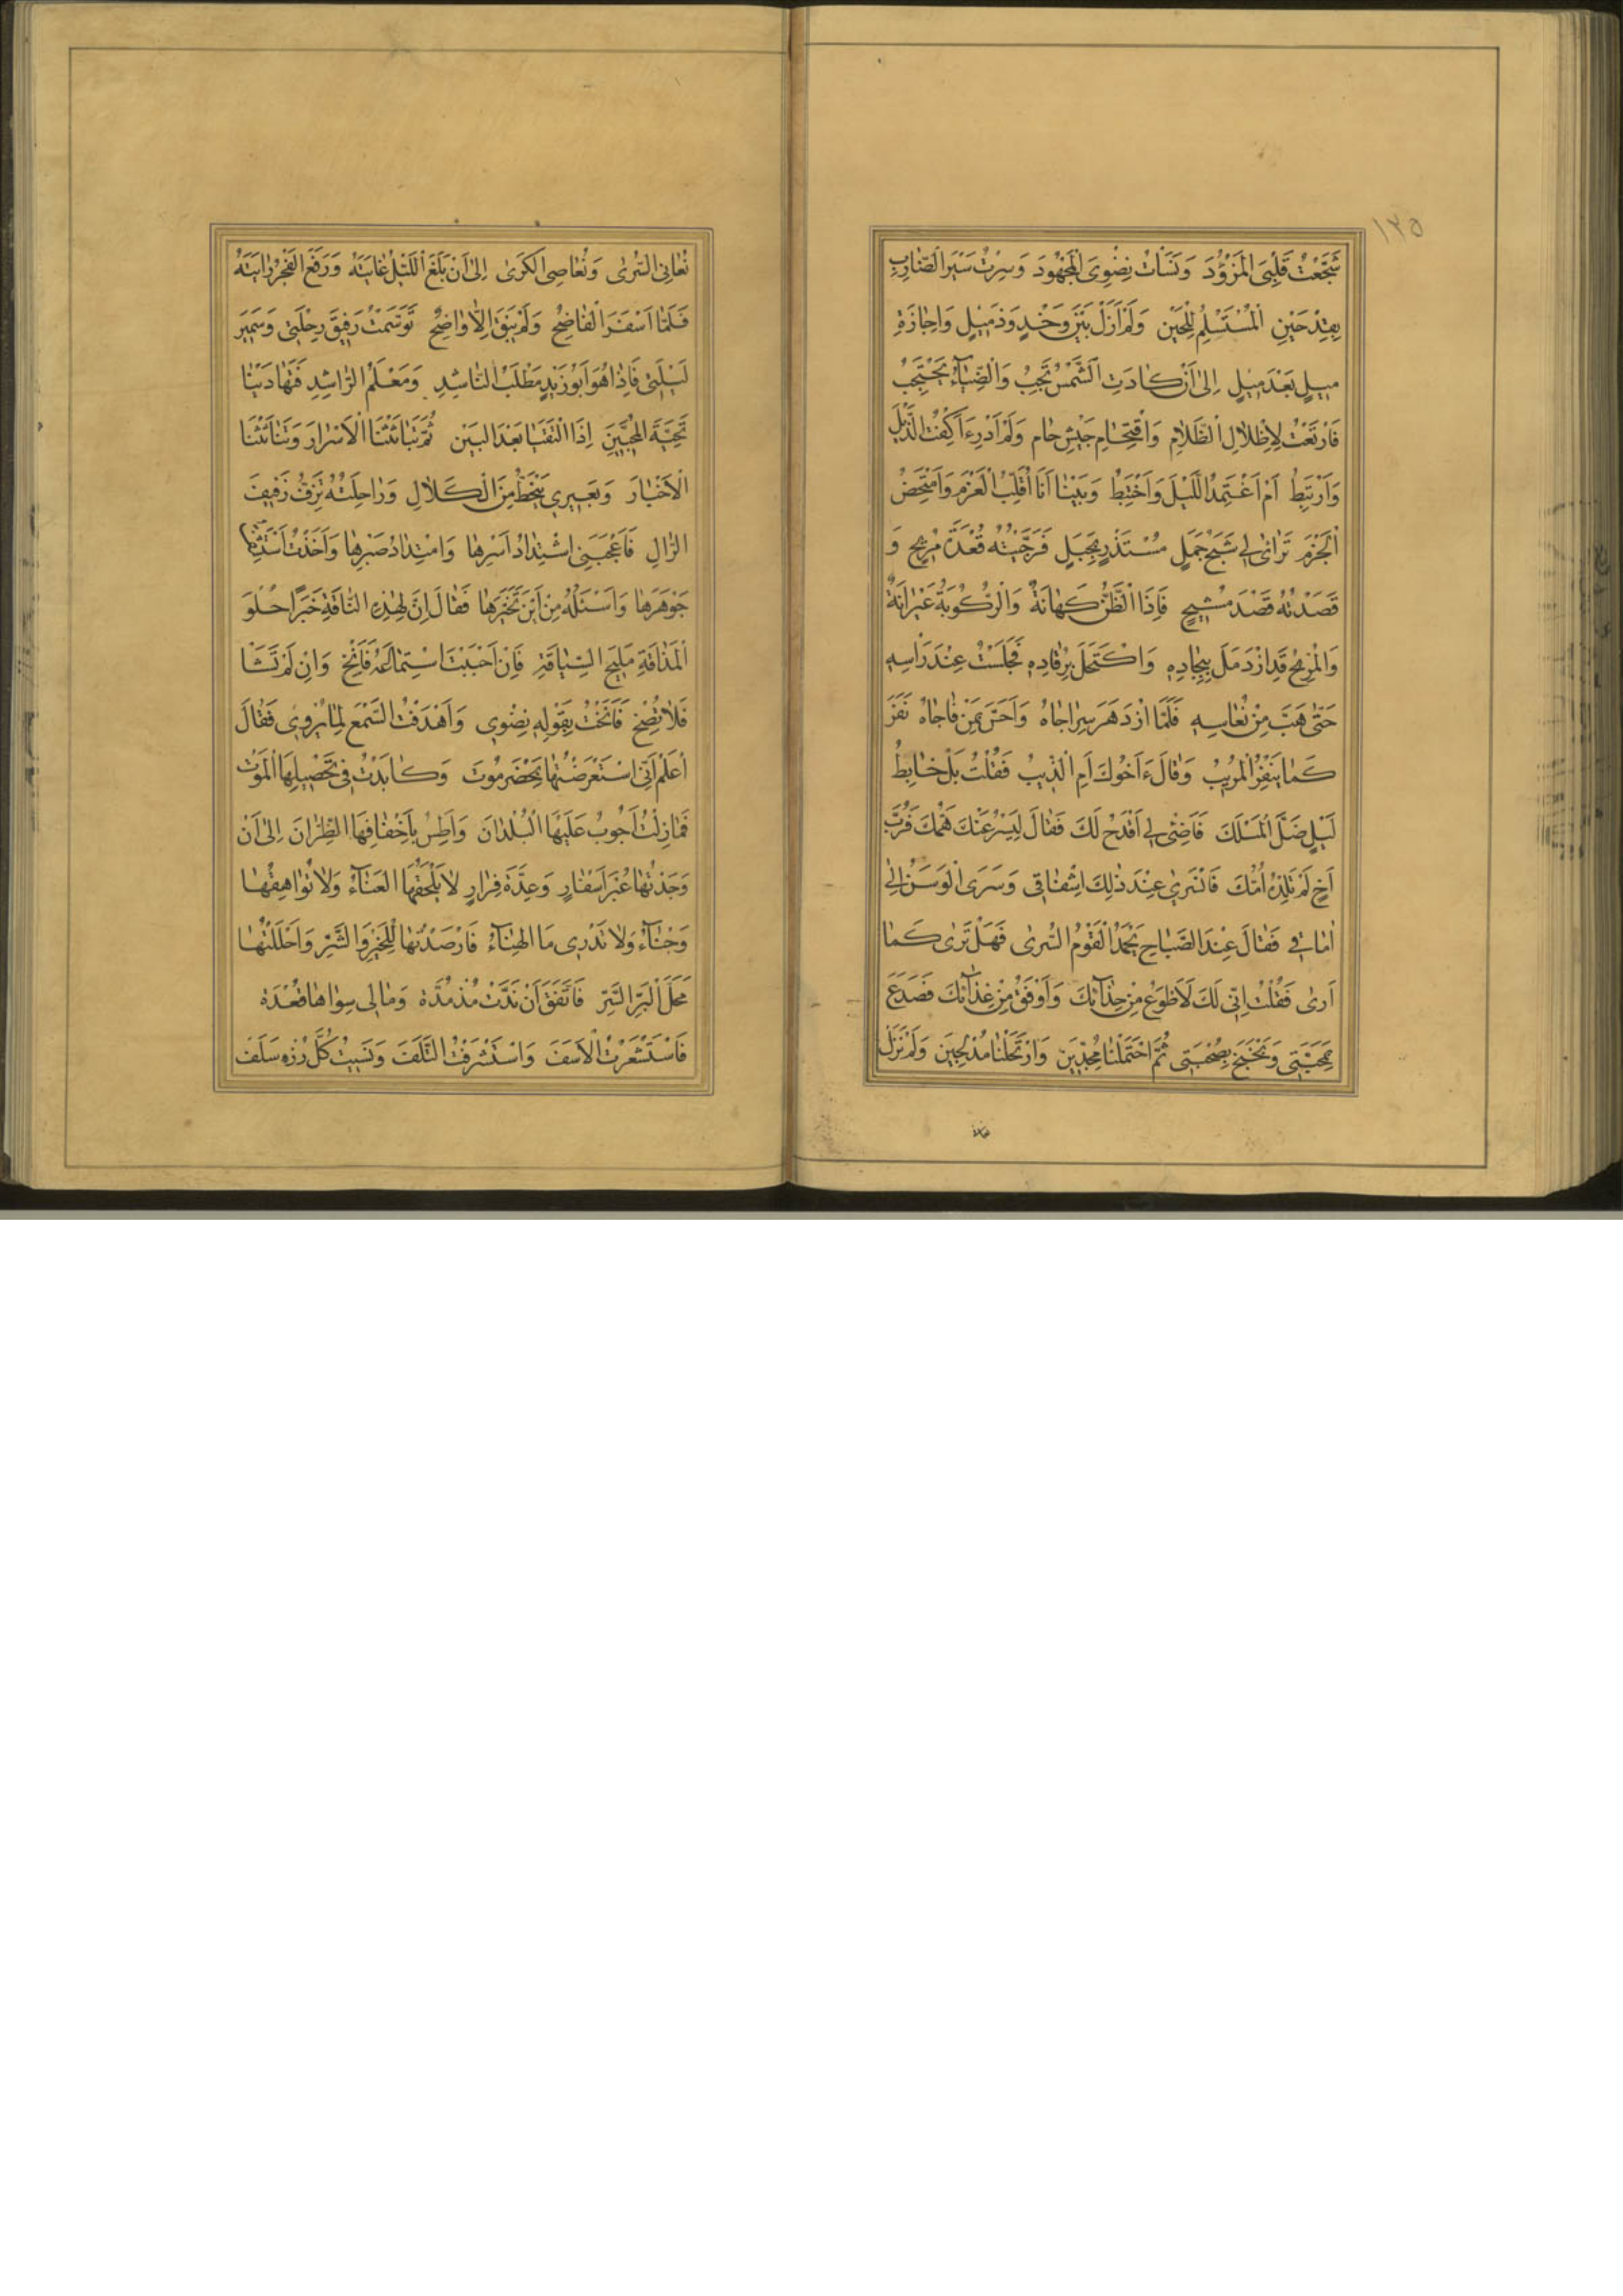 ١٢٥
شَجَّعْتُ قَلْبِىَ الْمَزْؤُدَ وَنَسَأْتُ نِضْوِىَ الْمَجْهُودَ وَسِرْتُ سَيْرَ الضّارِبِ
بِقِدْحَيْنِ الْمُسْتَسْلِمِ لِلْحَيْنِ وَلَمْ اَزَلْ بَيْنَ وَخْدٍ وَذَمِيلٍ وَاِجازَةِ
مِيلٍ بَعْدَ مِيلٍ اِلىٰ اَنْ كادَتِ الشَّمْسُ تَجِبُ وَالضِّيآءُ يَحْتَجِبُ
فَارْتَعْتُ لِاِظْلالِ الظَّلامِ وَاقْتِحامِ جَيْشِ حام وَلَمْ اَدْرِءَ اَكْفِتُ الذَّيْلَ
وَاَرْتَبِطُ اَمْ اَعْتَمِدُ اللَّيْلَ وَاَخْتَبِطُ وَبَيْنا اَنَا اُقَلِّبُ الْعَزْمَ وَاَمْتَخِضُ
الْحَزْمَ تَرائىٰ لِى شَبَحُ جَمَلٍ مُسْتَذْرٍ بِجَبَلٍ فَرَجَّيْتُهُ قُعْدَةَ مُرِيحٍ وَ
قَصَدْتُهُ قَصْدَ مُشِيحٍ فَاِذَا الظَّنُّ كَهانَةٌ وَالرَّكُوبَةُ عَيْرانَةٌ
وَالْمُرِيحُ قَدِ ازْدَمَلَ بِبِجادِهِ وَاكْتَحَلَ بِرُقادِهِ فَجَلَسْتُ عِنْدَ رَاْسِهِ
حَتّىٰ هَبَّ مِنْ نُعاسِهِ فَلَمَّا ازْدَهَرَ سِراجاهُ وَاَحَسَّ بِمَنْ فاجاهُ نَفَرَ
كَما يَنْفِرُ الْمُرِيبُ وَقالَ ءَاَخُوكَ اَمِ الذِّيبُ فَقُلْتُ بَلْ خابِطُ
لَيْلٍ ضَلَّ الْمَسْلَكَ فَاَضِئْ لِى اَقْدَحْ لَكَ فَقالَ لِيَسْرُ عَنْكَ هَمُّكَ فَرُبَّ
اَخٍ لَمْ تَلِدْهُ اُمُّكَ فَانْسَرىٰ عِنْدَ ذٰلِكَ اِشْفاقِى وَسَرَى الْوَسَنُ اِلىٰ
اٰماقِى فَقالَ عِنْدَ الصَّباحِ يَحْمَدُ الْقَوْمُ السُّرىٰ فَهَلْ تَرىٰ كَما
اَرىٰ فَقُلْتُ اِنِّى لَكَ لَاَطْوَعُ مِنْ حِذآئِكَ وَاَوْفَقُ مِنْ غِذآئِكَ فَصَدَعَ
بِمَحَبَّتِى وَبَخْبَخَ بِصُحْبَتِى ثُمَّ احْتَمَلْنا مُجِدِّينَ وَارْتَحَلْنا مُدْلِجِينَ وَلَمْ نَزَلْ
نُعانِى السُّرىٰ وَنُعاصِى الْكَرىٰ اِلىٰ اَنْ بَلَغَ اللَّيْلُ غايَتَهُ وَرَفَعَ الْفَجْرُ رايَتَهُ
فَلَمّا اَسْفَرَ الْفاضِحُ وَلَمْ يَبْقَ اِلاّ واضِحٌ تَوَسَّمْتُ رَفِيقَ رِحْلَتِى وَسَمِيرَ
لَيْلَتِى فَاِذا هُوَ اَبُو زَيْدٍ مَطْلَبُ النّاشِدِ وَمَعْلَمُ الرّاشِدِ فَتَهادَيْنا
تَحِيَّةَ الْمُحِبَّيْنِ اِذَا الْتَقَيا بَعْدَ الْبَيْنِ ثُمَّ تَباثَثْنَا الْاَسْرارَ وَتَناثَثْنَا
الْاَخْبارَ وَبَعِيرِى يَنْحَطُّ مِنَ الْكَلالِ وَراحِلَتُهُ تَزِفُّ زَفِيفَ
الرّالِ فَاَعْجَبَنِى اشْتِدادُ اَسْرِها وَامْتِدادُ صَبْرِها وَاَخَذْتُ اَسْتَشِفُّ
جَوْهَرَها وَاَسْئَلُهُ مِنْ اَيْنَ تَخَيَّرَها فَقالَ اِنَّ لِهٰذِهِ النّاقَةِ خَبَرًا حُلْوَ
الْمَذاقَةِ مَلِيحَ السِّياقَةِ فَاِنْ اَحْبَبْتَ اسْتِماعَهُ فَاَنِخْ وَاِنْ لَمْ تَشَاْ
فَلا تُصِخْ فَاَنَخْتُ بِقَوْلِهِ نِضْوِى وَاَهْدَفْتُ السَّمْعَ لِما يَرْوِى فَقالَ
اعْلَمْ اَنِّى اسْتَعْرَضْتُها بِحَضْرَمُوتَ وَكابَدْتُ فِى تَحْصِيلِهَا الْمَوْتَ
فَما زِلْتُ اَجُوبُ عَلَيْهَا الْبُلْدانَ وَاَطِسُ بِاَخْفافِهَا الظِّرّانَ اِلىٰ اَنْ
وَجَدْتُها عُبْرَ اَسْفارٍ وَعِدَّةَ فِرارٍ لا يَلْحَقُهَا الْعَنآءُ وَلا تُواهِقُها
وَجْنآءُ وَلا تَدْرِى مَا الْهِنآءُ فَارْصَدْتُها لِلْخَيْرِ وَالشَّرِّ وَاَحْلَلْتُها
مَحَلَّ الْبَرِّ السَّرِّ فَاتَّفَقَ اَنْ نَدَّتْ مُذْ مُدَّة وَمالِى سِواها قُعْدَة
فَاسْتَشْعَرْتُ الْاَسَفَ وَاسْتَشْرَفْتُ التَّلَفَ وَنَسِيتُ كُلَّ رُزْءٍ سَلَفَ